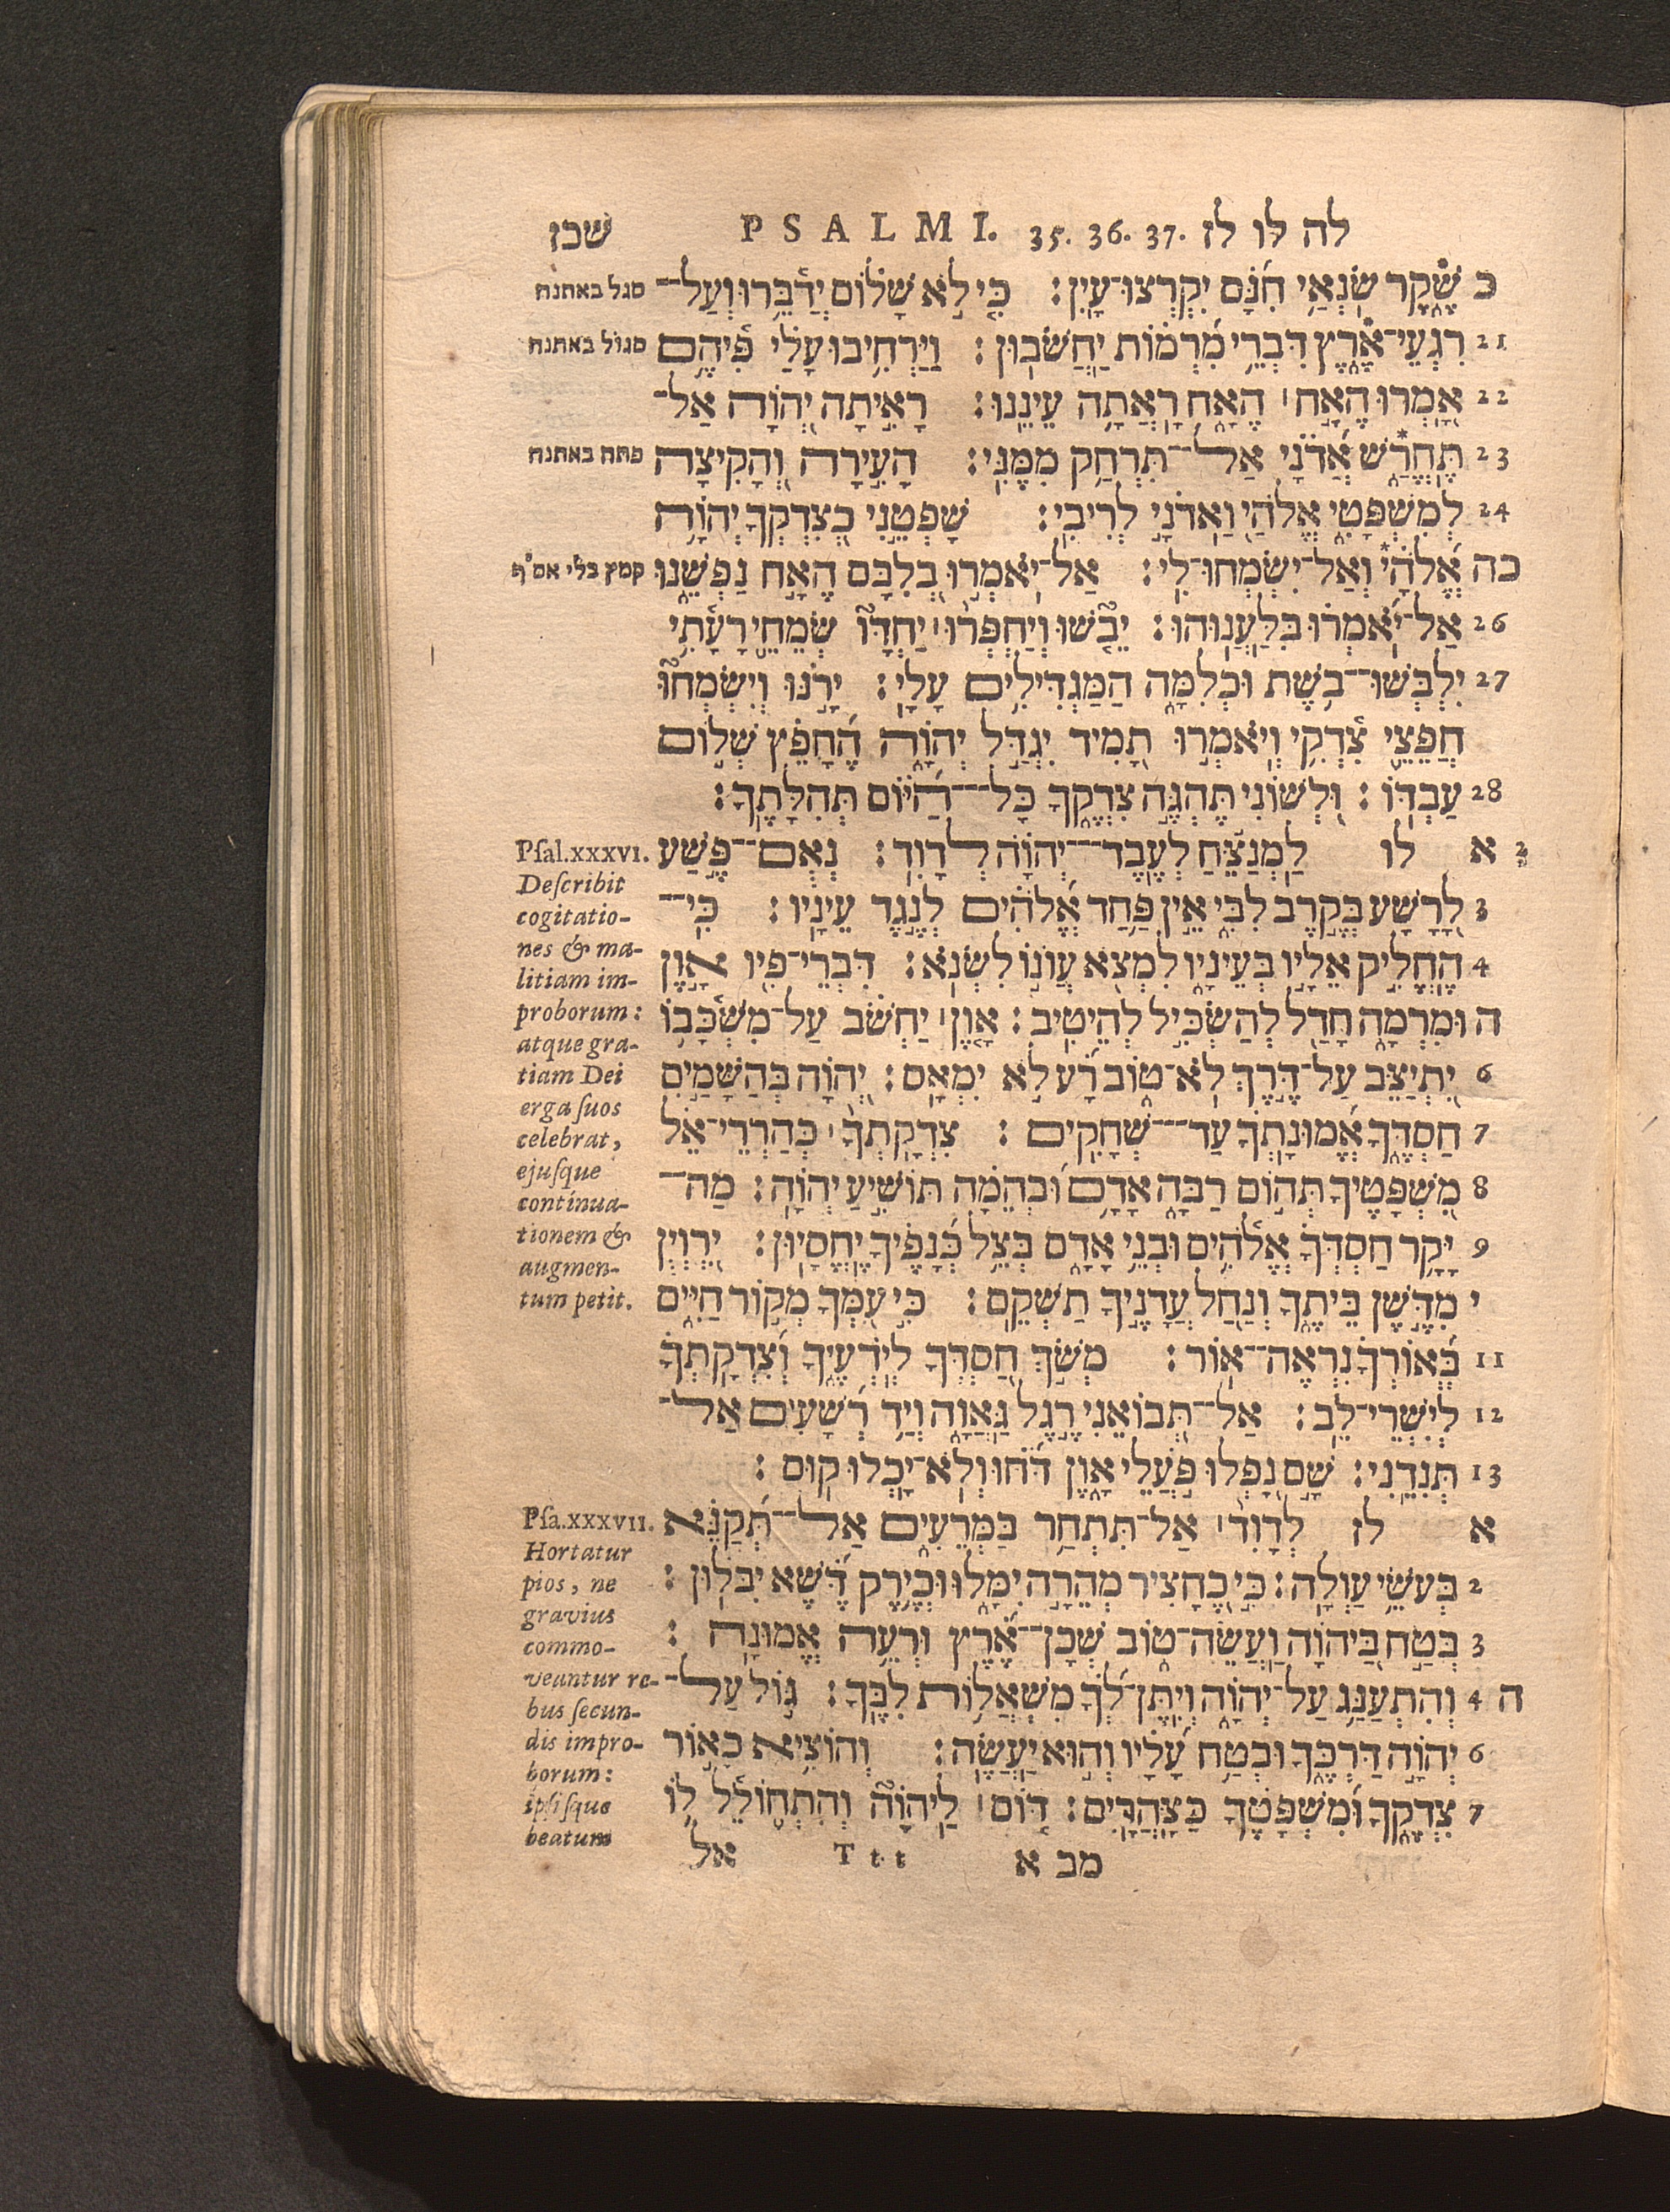 לה לו לז PSALMI. 35. 36. 37. שכז
כ שֶׁקֶר שֹׂנְאַי חִנָּם יִקְרְצוּ־עָיִן׃ כִּי לֹא שָׁלוֹם יְדַבֵּרוּ וְעַל־ סגל באתנח
21 רִגְעֵי־אֶרֶץ דִּבְרֵי מִרְמוֹת יַחֲשֹׁבוּן׃ וַיַּרְחִיבוּ עָלַי פִּיהֶם סגול באתנח
22 אָמְרוּ הֶאָח ׀ הֶאָח רָאֲתָה עֵינֵנוּ׃ רָאִיתָה יְהוָֹה אַל־
23 תֶּחֱרַשׁ אֲדֹנָי אַל־תִּרְחַק מִמֶּנִּי׃ הָעִירָה וְהָקִיצָה פתח באתנח
24 לְמִשְׁפָּטִי אֱלֹהַי וַאדֹנָי לְרִיבִי׃ שָׁפְטֵנִי כְצִדְקְךָ יְהוָֹה
כה אֱלֹהָי וְאַל־יִשְׂמְחוּ־לִי׃ אַל־יֹאמְרוּ בְלִבָּם הֶאָח נַפְשֵׁנוּ קמץ בלי אס״ף
26 אַל־יֹאמְרוּ בִּלַּעֲנוּהוּ׃ יֵבֹשׁוּ וְיַחְפְּרוּ ׀ יַחְדָּו שְׂמֵחֵי רָעָתִי
27 יִלְבְּשׁוּ־בֹשֶׁת וּכְלִמָּה הַמַּגְדִּילִים עָלָי׃ יָרֹנּוּ וְיִשְׂמְחוּ
חֲפֵצֵי צִדְקִי וְיֹאמְרוּ תָמִיד יִגְדַּל יְהוָֹה הֶחָפֵץ שְׁלוֹם
28 עַבְדּוֹ׃ וּלְשׁוֹנִי תֶּהְגֶּה צִדְקֶךָ כָּל־הַיּוֹם תְּהִלָּתֶךָ׃
2 א לו לַמְנַצֵּחַ לְעֶבֶד־יְהוָֹה לְדָוִד׃ נְאֻם־פֶּשַׁע Psal.xxxvi.
3 לָרָשָׁע בְּקֶרֶב לִבִּי אֵין פַּחַד אֱלֹהִים לְנֶגֶד עֵינָיו׃ כִּי־
4 הֶחֱלִיק אֵלָיו בְּעֵינָיו לִמְצֹא עֲוֹנוֹ לִשְׂנֹא׃ דִּבְרֵי־פִיו אָוֶן
ה וּמִרְמָה חָדַל לְהַשְׂכִּיל לְהֵיטִיב׃ אָוֶן ׀ יַחְשֹׁב עַל־מִשְׁכָּבוֹ
6 יִתְיַצֵּב עַל־דֶּרֶךְ לֹא־טוֹב רָע לֹא יִמְאָס׃ יְהוָֹה בְּהַשָּׁמַיִם
7 חַסְדֶּךָ אֱמוּנָתְךָ עַד־שְׁחָקִים׃ צִדְקָתְךָ ׀ כְּהַרְרֵי־אֵל
8 מִשְׁפָּטֶיךָ תְּהוֹם רַבָּה אָדָם וּבְהֵמָה תוֹשִׁיעַ יְהוָֹה׃ מַה־
9 יָּקָר חַסְדְּךָ אֱלֹהִים וּבְנֵי אָדָם בְּצֵל כְּנָפֶיךָ יֶחֱסָיוּן׃ יִרְוְיֻן
י מִדֶּשֶׁן בֵּיתֶךָ וְנַחַל עֲדָנֶיךָ תַשְׁקֵם׃ כִּי עִמְּךָ מְקוֹר חַיִּים
11 בְּאוֹרְךָ נִרְאֶה־אוֹר׃ מְשֹׁךְ חַסְדְּךָ לְיֹדְעֶיךָ וְצִדְקָתְךָ
12 לְיִשְׁרֵי־לֵב׃ אַל־תְּבוֹאֵנִי רֶגֶל גַּאֲוָה וְיַד רְשָׁעִים אַל־
13 תְּנִדֵנִי׃ שָׁם נָפְלוּ פֹּעֲלֵי אָוֶן דֹּחוּ וְלֹא־יָכְלוּ קוּם׃
א לז לְדָוִד ׀ אַל־תִּתְחַר בַּמְּרֵעִים אַל־תְּקַנֵּא Psa.xxxvii.
2 בְּעֹשֵׂי עַוְלָה׃ כִּי כֶחָצִיר מְהֵרָה יִמָּלוּ וּכְיֶרֶק דֶּשֶׁא יִבּוֹלוּן׃
3 בְּטַח בַּיהוָֹה וַעֲשֵׂה־טוֹב שְׁכָן־אֶרֶץ וּרְעֵה אֱמוּנָה׃
ה 4 וְהִתְעַנַּג עַל־יְהוָֹה וְיִתֶּן־לְךָ מִשְׁאֲלוֹת לִבֶּךָ׃ גּוֹל עַל־
6 יְהוָֹה דַּרְכֶּךָ וּבְטַח עָלָיו וְהוּא יַעֲשֶׂה׃ וְהוֹצִיא כָאוֹר
7 צִדְקֶךָ וּמִשְׁפָּטֶךָ כַּצָּהֳרָיִם׃ דּוֹם ׀ לַיהוָֹה וְהִתְחוֹלֵל לוֹ
מב א Ttt אל
Describit
cogitatio-
nes & ma-
litiam im-
proborum:
atque gra-
tiam Dei
erga suos
celebrat,
ejusque
continua-
tionem &
augmen-
tum petit.
Hortatur
pios, ne
gravius
commo-
veantur re-
bus secun-
dis impro-
borum:
ipsisque
beatum